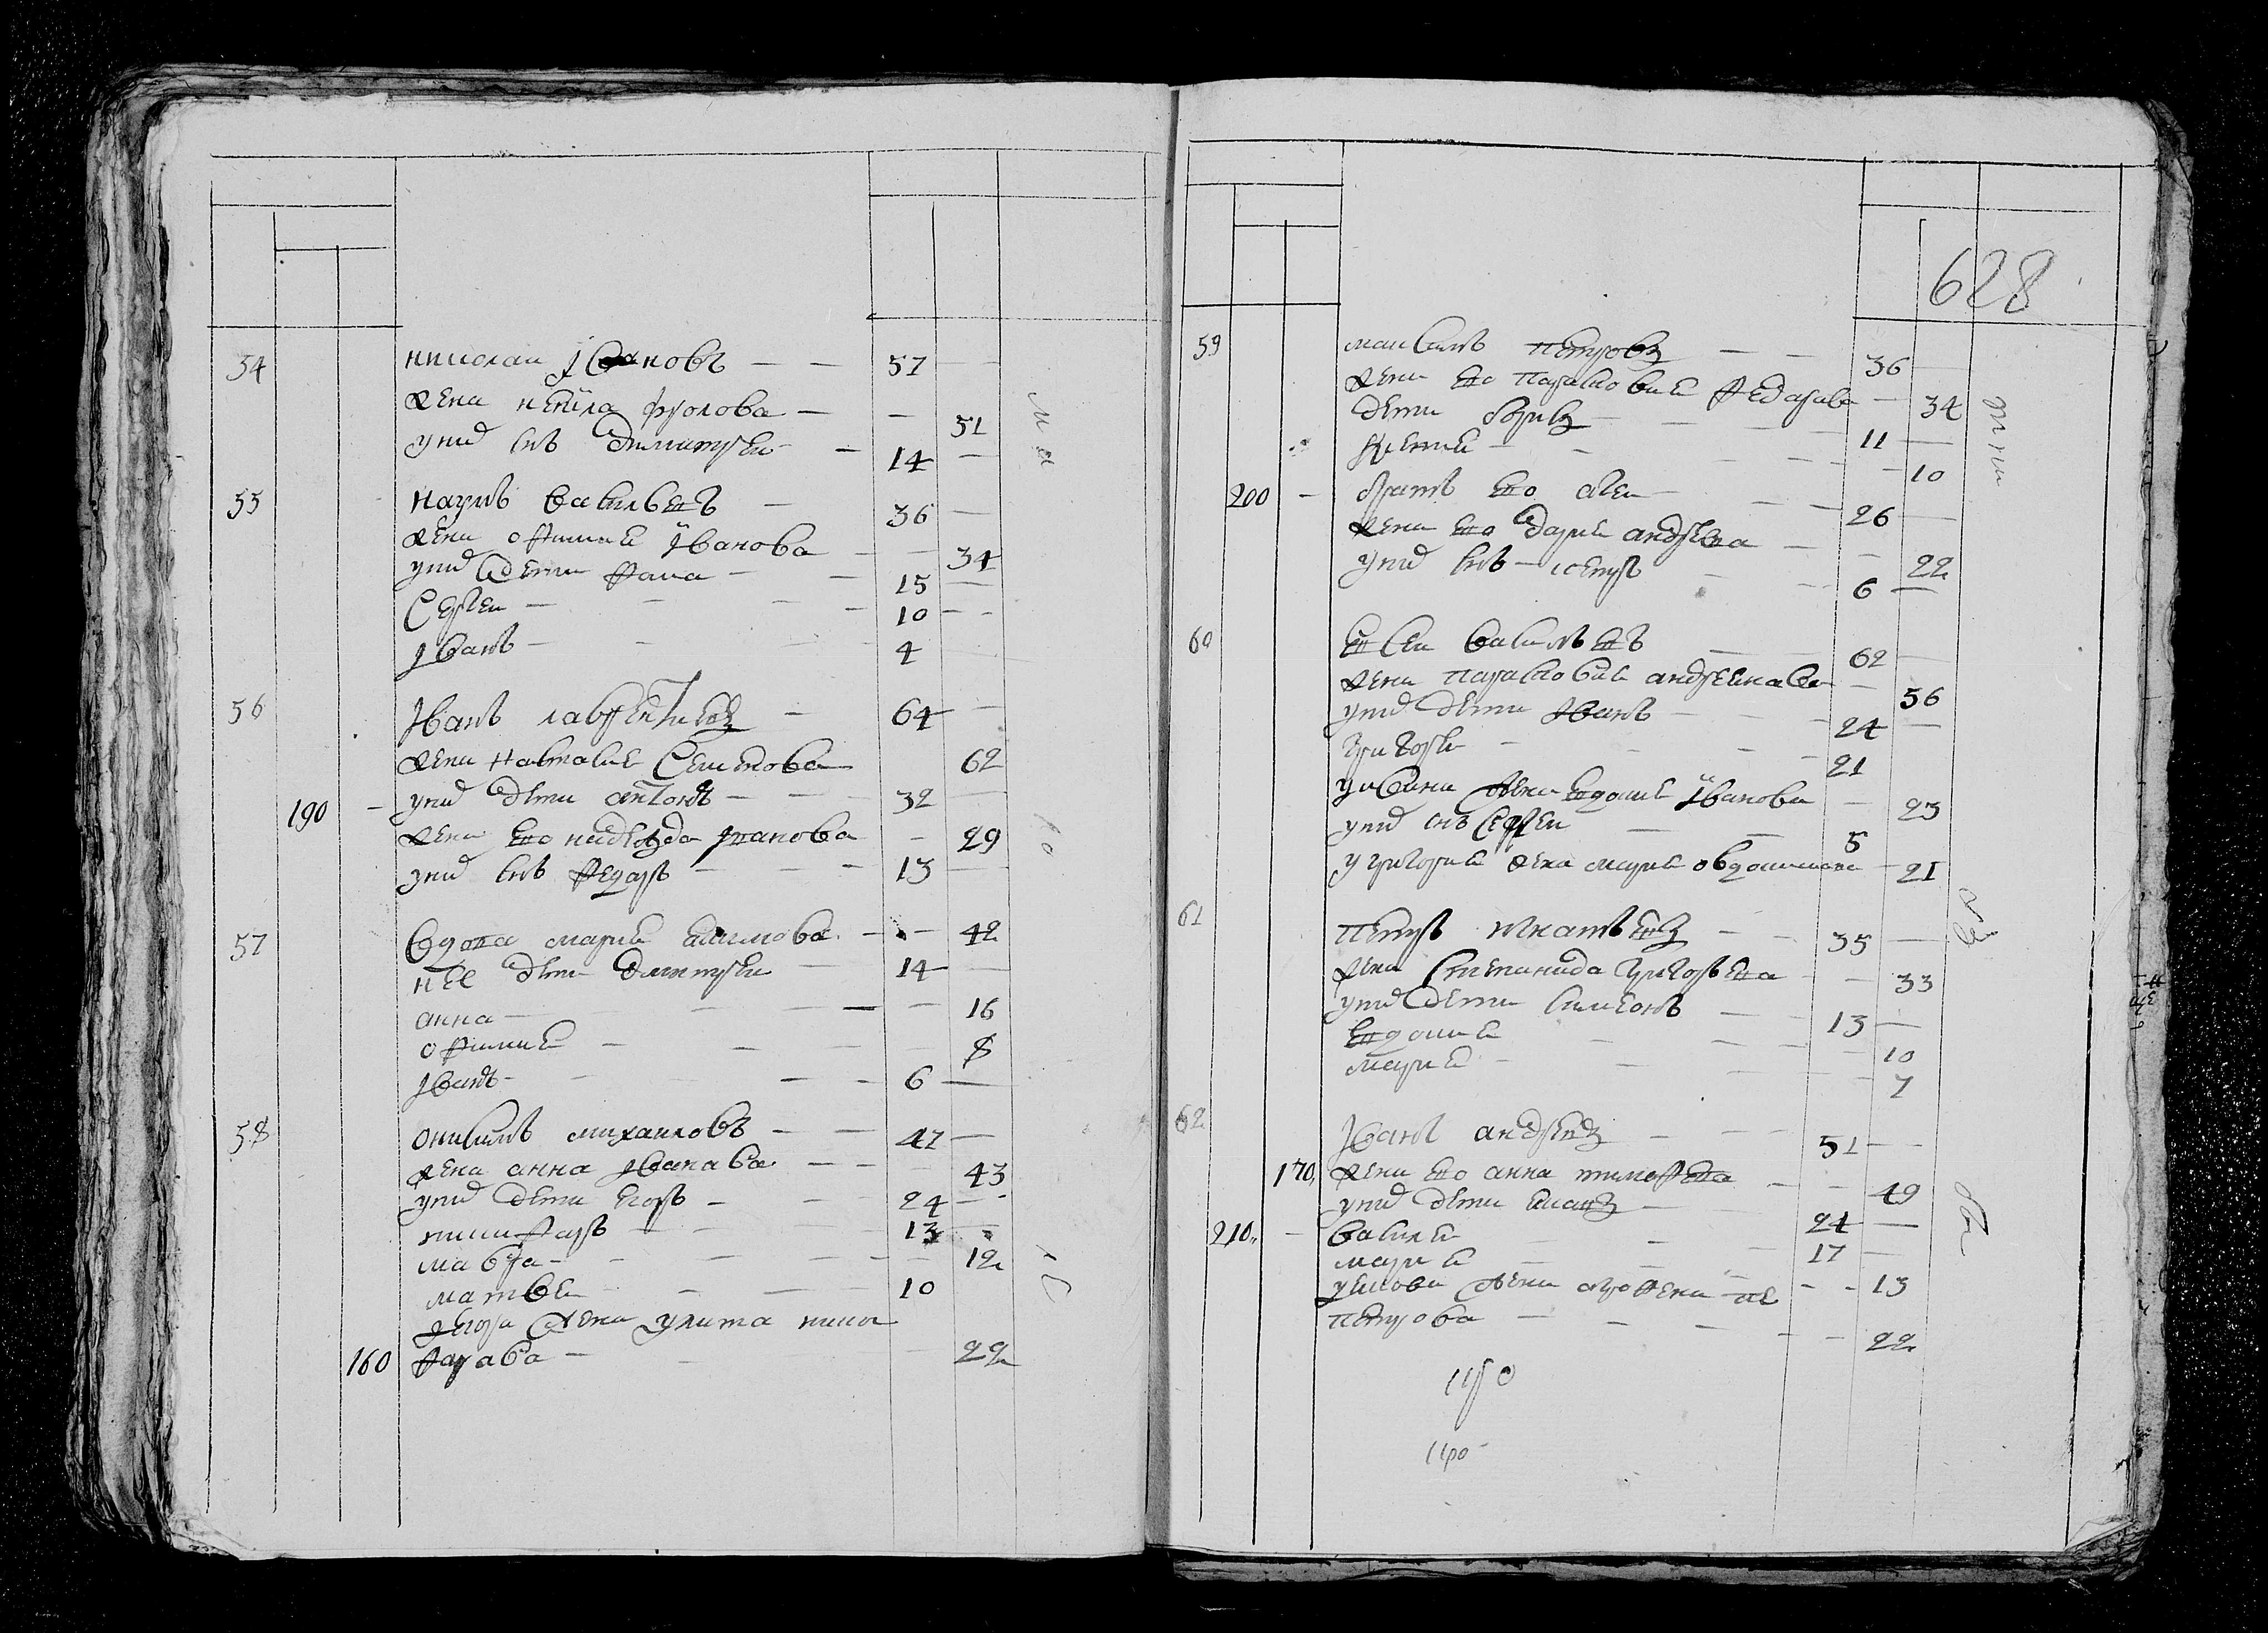 54 николаи Ивановъ — — 57 —
жена ненила фролова — — 51
у нихъ снъ Димитреи — 14 —
55 наумъ васильевъ — 36 —
жена офимия Иванова — — 34
у нихъ дети фома — — 15 —
Сергеи — — — — 10 — -
Иванъ — — — 4
56 Иванъ лаврентиевъ — 64 —
жена наталия Семенова 62
190 — у нихъ дети антонъ — — 32 —
жена ево надежда Иванова — 29
у нихъ снъ федоръ — — — 13 —
57 вдова мария Якимова — — 42
у нее дети Димитреи — 14 —
анна — — — — — 16
офимия — — — — 8
Иванъ — — — — 6 —
58 онисимъ михаиловъ — — 47 —
жена анна Иванава — — 43
у нихъ дети егоръ — — 24 —
никифаръ — — — 13 —
мавра — — — — — 12
матвеи — — — 10
у егора жена улита ники
160 фарава — — — 22
628
59 петровъ — — 36 —
жена ево парасковия федарава — 34
дети борисъ — — — 11 —
— — — — 10
200 — братъ ево — — 26 —
жена ево дария андреева — — 22
у нихъ снъ — петръ — — 6 —
60 евсеи васильевъ — — 62 —
жена парасковия андреянава — 56
у нихъ дети Иванъ — — — 24 —
григореи — — — — 21
у ивана жена евдокия Иванова — 23
у нихъ снъ Сергеи — — 5
у григория жена мария овдокимава — 21
61 петръ игнатьевъ — — 35 —
жена Степанида григорьева — — 33
у нихъ дети симеонъ — — 13 —
евдокия — — — — 10
мария — — — — — 7
62 Иванъ андреевъ — — 51 —
170 жена ево анна тимофеева — — 49
у нихъ дети — — 24 —
210 — василеи — — — 17 —
мария — — — — — 13
жена
петрова — — — — — — 22